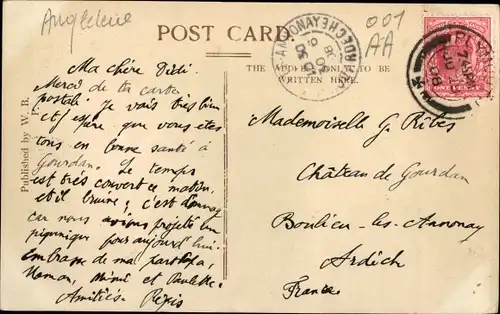 Angleterre
001
AA
POST CARD.
THE ADDRESS ONLY TO BE
WRITTEN HERE.
Published by W. B. P.
ONE PENNY
Ma chère Didi.
Merci de ta carte
postale. Je vais très bien
et j'espère que vous êtes
tous en bonne santé à
Gourdan. Le temps
est très couvert ce matin,
et il bruine; c'est
car nous avions projeté un
piquenique pour aujourd'hui.
Embrasse de ma part Papa,
Maman, Mimi et Paulette.
Amitiés. Pépis
Mademoiselle G. Ribes
Château de Gourdan
Boulieu-les-Annonay
Ardèch
France